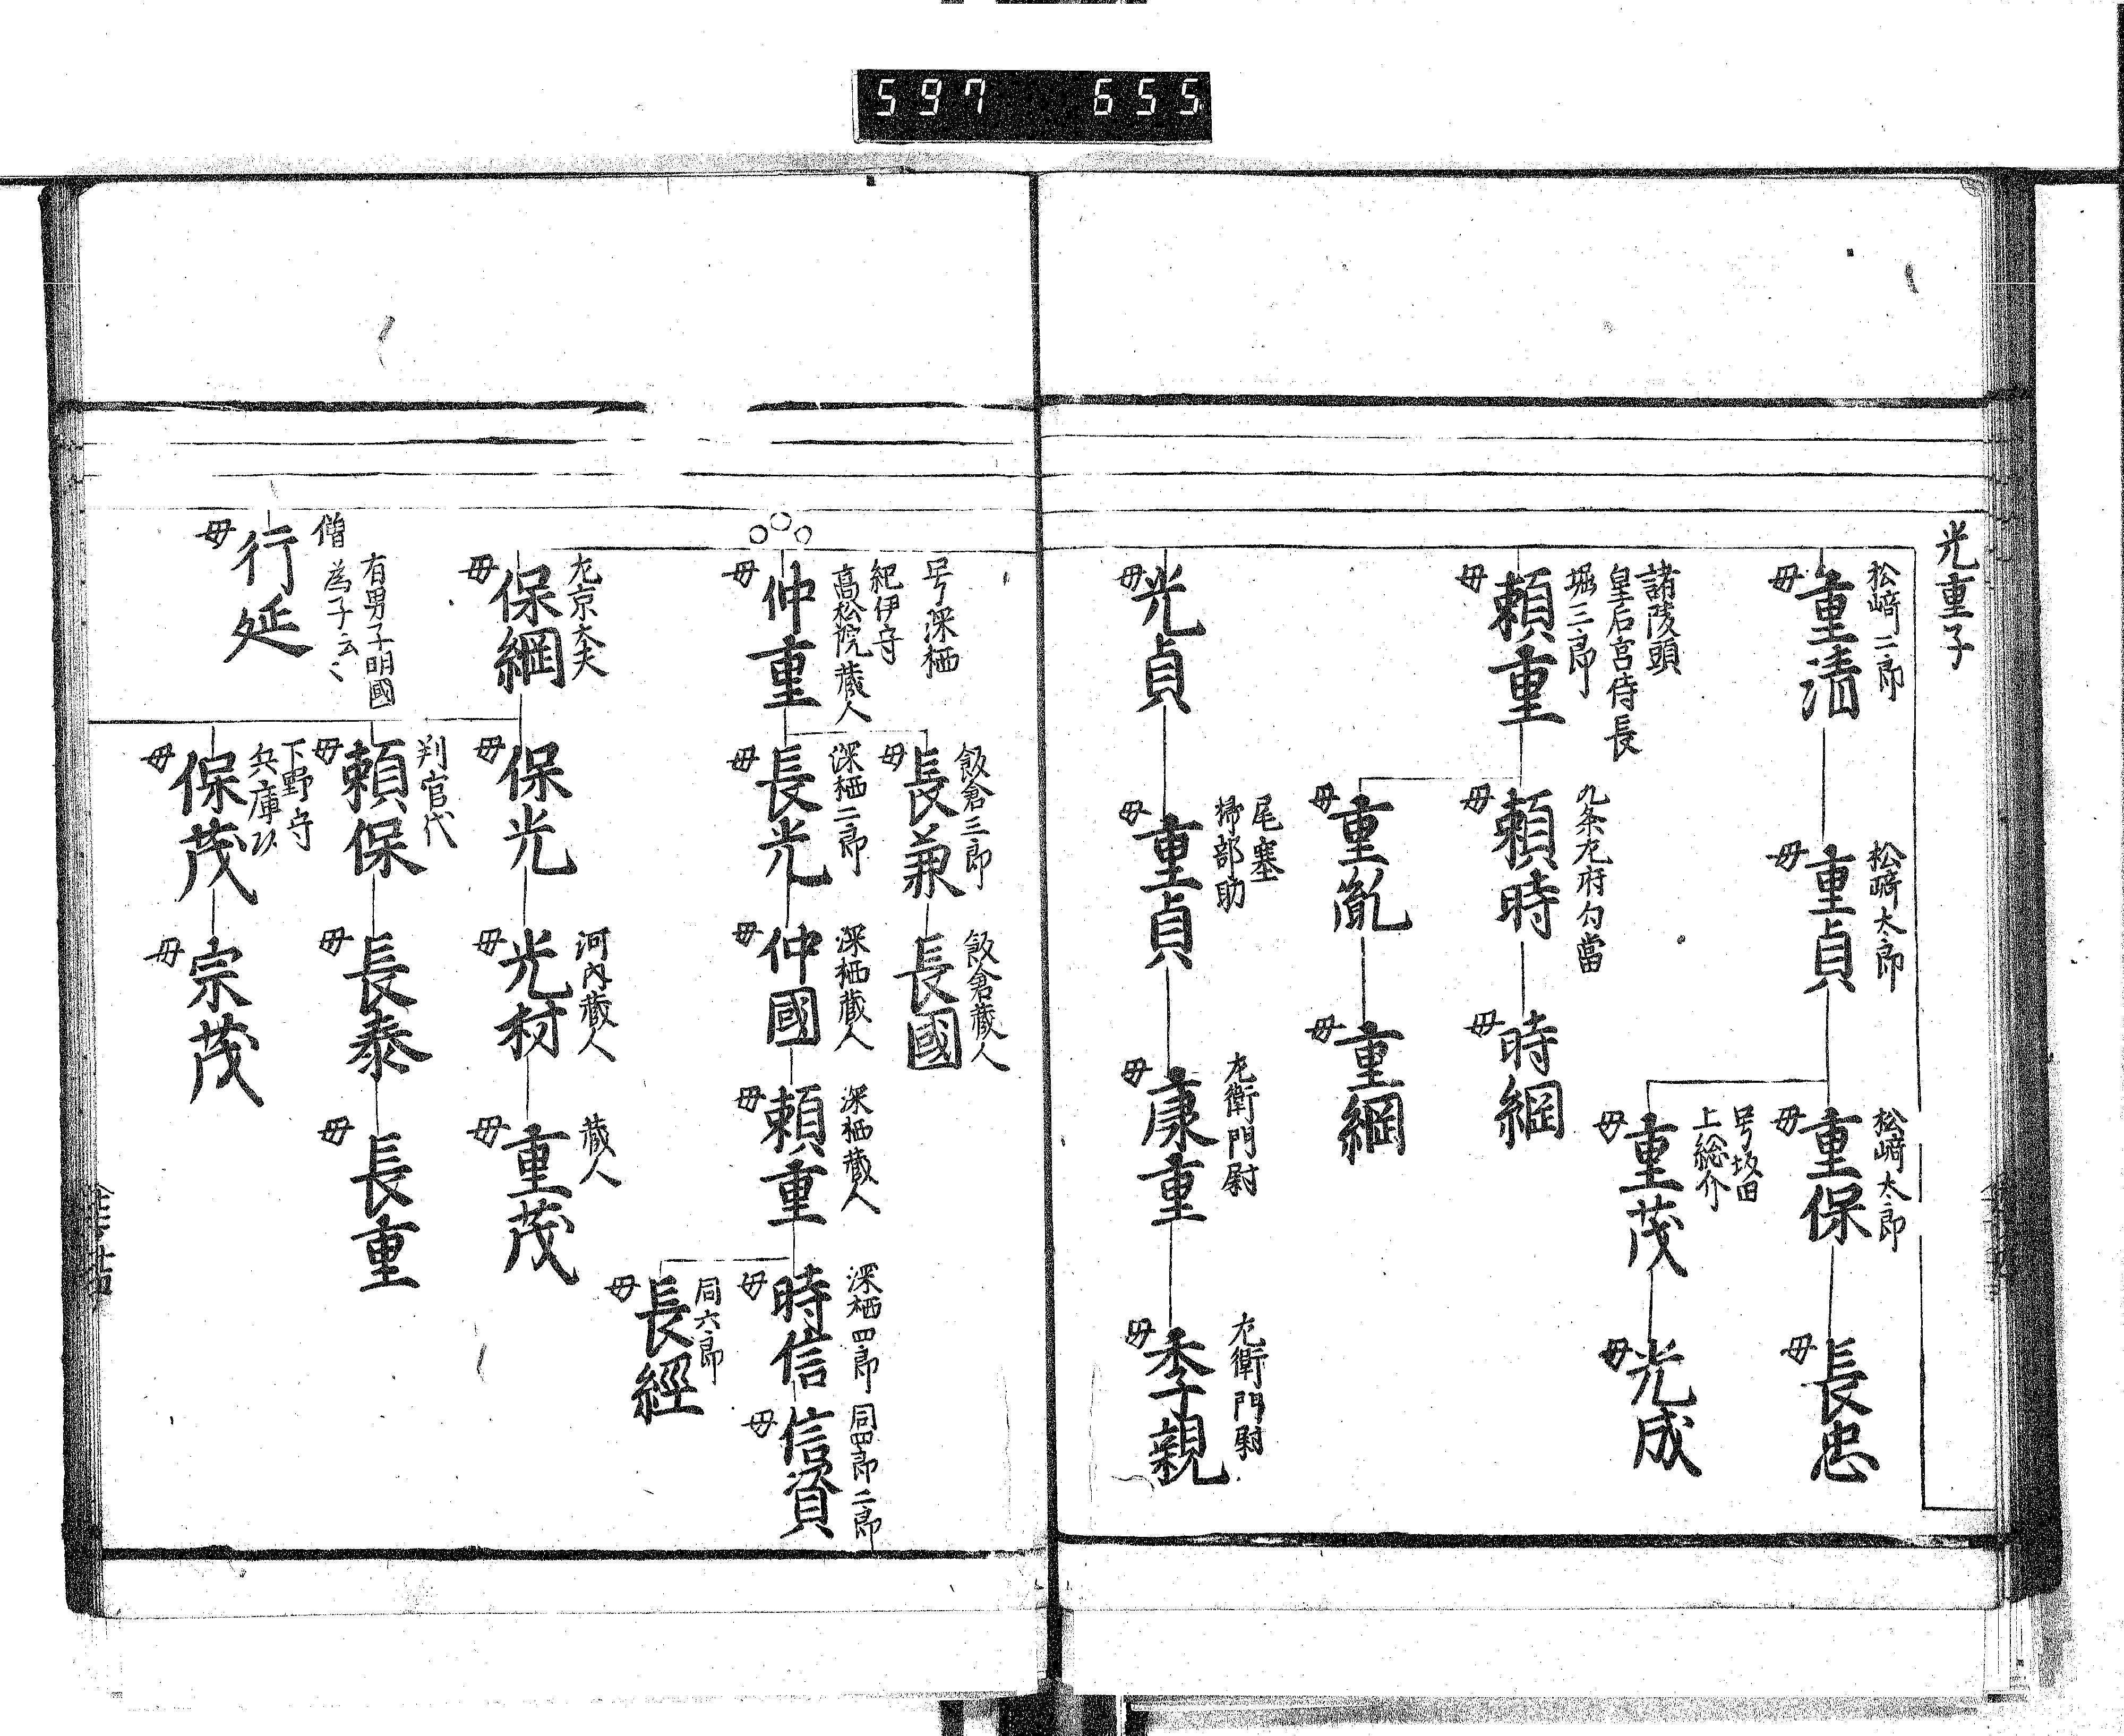 597 655
光重子
松﨑二郎
母
重清
松﨑太郎
母
重貞
松﨑太郎
母
重保
母
長忠
号坂田
上総介
母
重茂
母
光成
諸陵頭
皇后宮侍長
堀三郎
母
頼重
九条左府勾當
母
頼時
母
時綱
母
重胤
母
重綱
母
光貞
尾塞
掃部助
母
重貞
左衛門尉
母
康重
左衛門尉
母
季親
号深栖
紀伊守
高松院蔵人
母
仲重
飯倉三郎
母
長兼
飯倉蔵人
長國
深栖二郎
母
長光
深栖蔵人
母
仲國
深栖蔵人
母
頼重
深栖四郎
母
時信
同四郎二郎
母
信資
同六郎
母
長經
左京大夫
母
保綱
母
保光
河内蔵人
母
光材
蔵人
母
重茂
判官代
母
頼保
母
長泰
母
長重
下野守
兵庫助
母
保茂
母
宗茂
有男子明國
為子云々
僧
行延
母